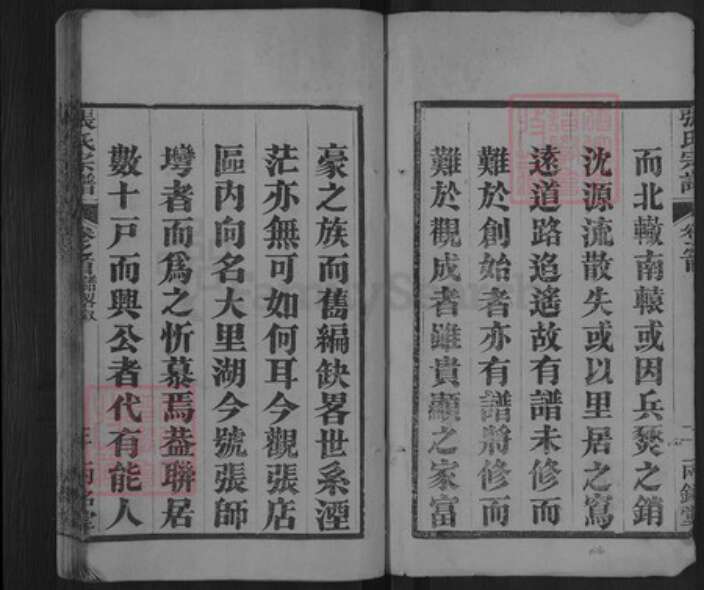 張氏宗譜 卷之首 二 兩銘堂
而北轍南轅或因兵燹之銷
沈源流散失或以里居之寫
遠道路迢遙故有譜未修而
難於創始者亦有譜將修而
難於觀成者雖貴顯之家富
豪之族而舊編缺畧世系湮
茫亦無可如何耳今觀張店
區內向名大里湖今號張師
塆者而爲之忻慕焉葢聯居
數十戸而興公者代有能人
張氏宗譜 卷之首 譜畧叙 三 兩銘堂